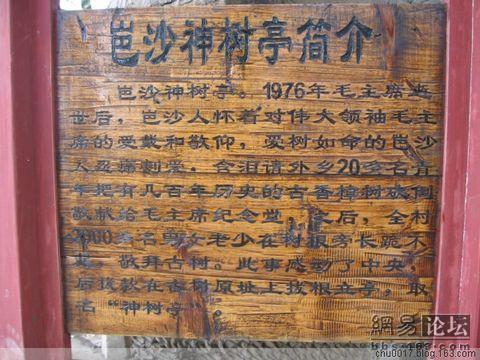 岜沙神树亭简介
岜沙神树亭。1976年毛主席逝
世后，岜沙人怀着对伟大领袖毛主
席的爱戴和敬仰，爱树如命的岜沙
人忍痛割爱，含泪请外乡20多名青
年把有几百年历史的古香樟树砍倒
敬献给毛主席纪念堂，之后，全村
2000多名男女老少在树根旁长跪不
起，敬拜古树。此事感动了中央，
后拨款在古树原址上找根立亭，取
名“神树亭”。
網易 论坛
bbs.163.com
chu0017.blog.163.com